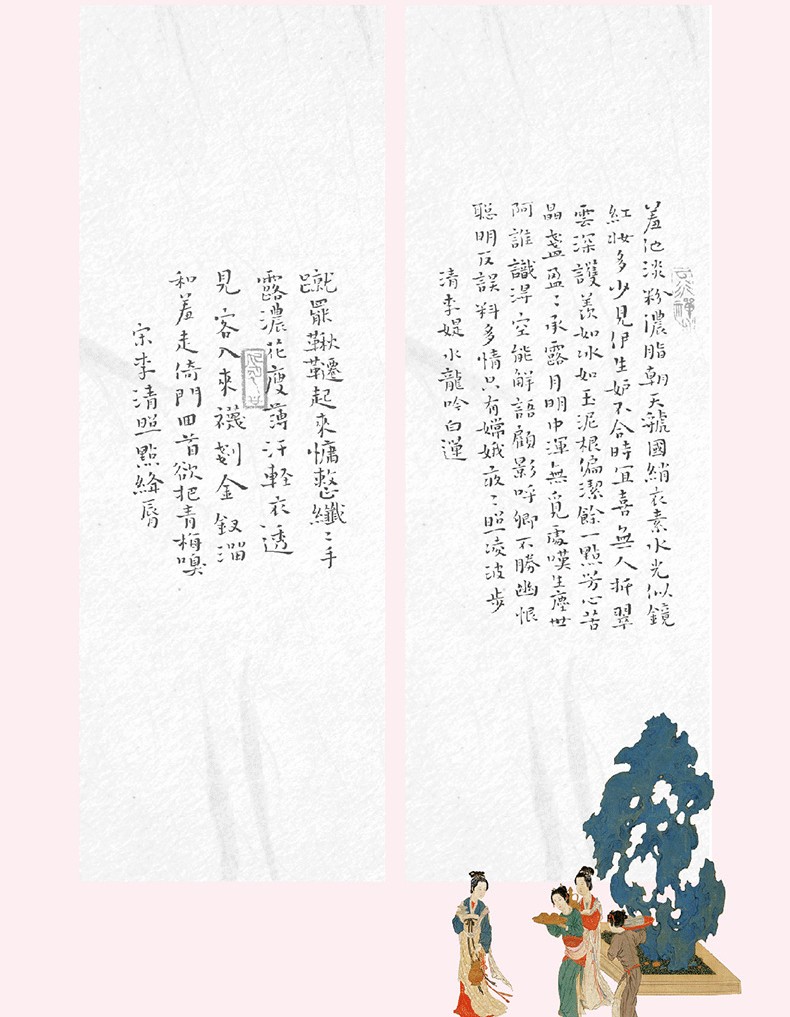 羞他淡粉濃脂朝天虢國綃衣素水光似鏡
紅妝多少見伊生妒不合時宜喜無人折翠
雲深護羨如冰如玉泥根偏潔餘一點芳心苦
晶盞盈〻承露月明中渾無覓處嘆生塵世
阿誰識得空能解語顧影呼卿不勝幽恨
聰明反誤料多情只有嫦娥夜〻照凌波步
清李媞水龍吟白蓮
蹴罷鞦韆起來慵整纖〻手
露濃花瘦薄汗輕衣透
見客入來襪剗金釵溜
和羞走倚門回首欲把青梅嗅
宋李清照點絳唇